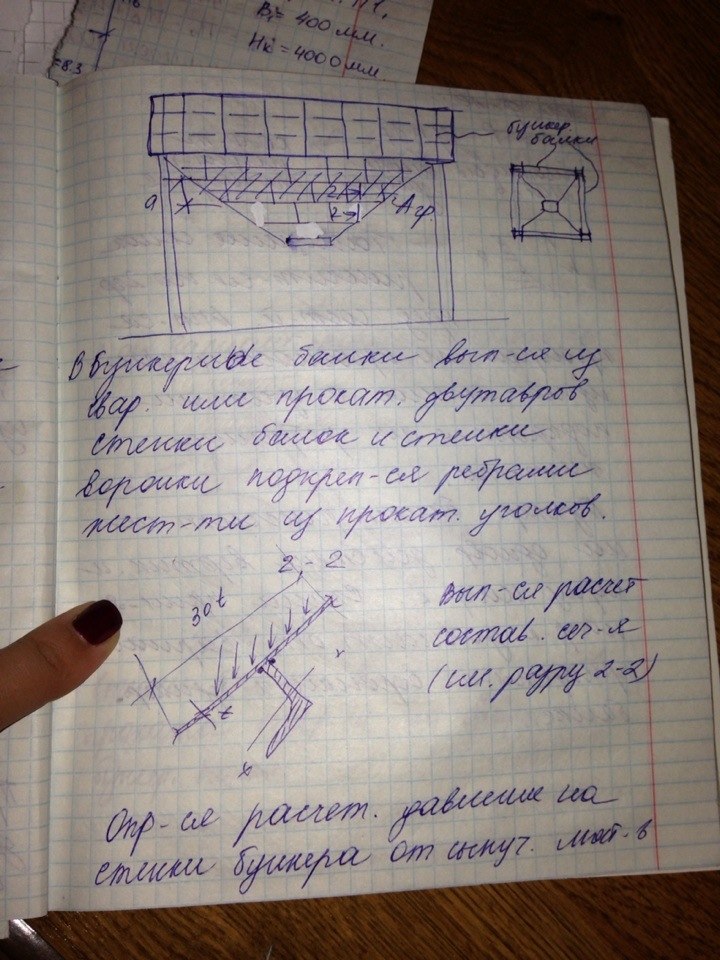 B₁ = 400 мм.
Hк = 4000 мм.
=8.3
бункер.
балки
a
2
2
Агр.
Бункерные балки вып-ся из
свар. или прокат. двутавров
стенки балок и стенки
воронки подкреп-ся ребрами
жест-ти из прокат. уголков.
2 - 2
30t
вып-ся расчет
состав. сеч-я
(см. разрез 2-2)
t
x
x
Опр-ся расчет. давление на
стенки бункера от сыпуч. мат-в